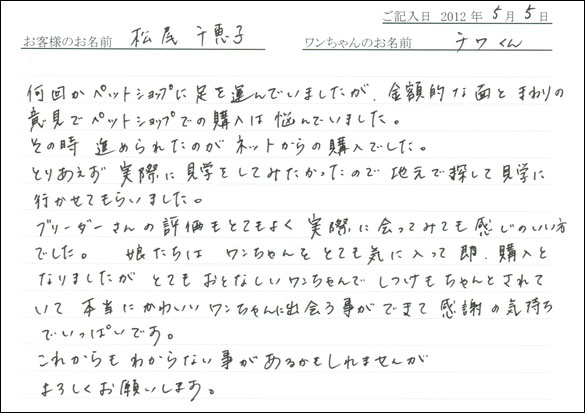 ご記入日 2012年 5月 5日
お客様のお名前 松尾 千恵子 ワンちゃんのお名前 チワくん
何回かペットショップに足を運んでいましたが、金額的な面とまわりの
意見でペットショップでの購入は悩んでいました。
その時 進められたのがネットからの購入でした。
とりあえず 実際に見学をしてみたかったので 地元で探して見学に
行かせてもらいました。
ブリーダーさんの評価もとてもよく 実際に会ってみても感じのいい方
でした。 娘たちは ワンちゃんを とても気に入って 即、購入と
なりましたが とても おとなしいワンちゃんで しつけも ちゃんとされて
いて 本当に かわいいワンちゃんに出会う事ができて 感謝の気持ち
でいっぱいです。
これからも わからない事があるかもしれませんが
よろしくお願いします。